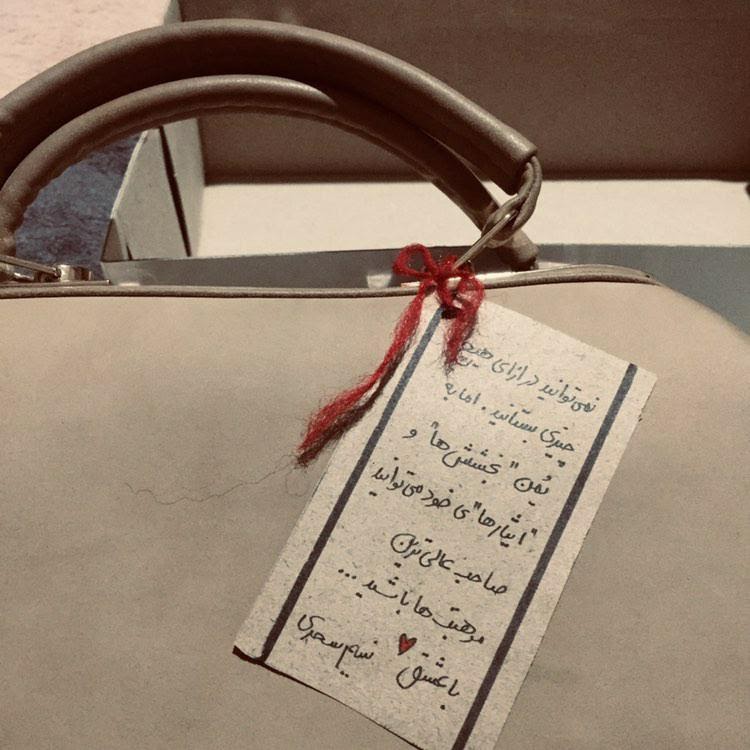 نمی‌توانید در ازای هیچ
چیزی بستانید. اما به
یُمن "بخشش ها" و
"ایثارها"ی خود می‌توانید
صاحب عالی‌ترین
موهبت ها باشید...
با عشق ♥ نسیم سحری